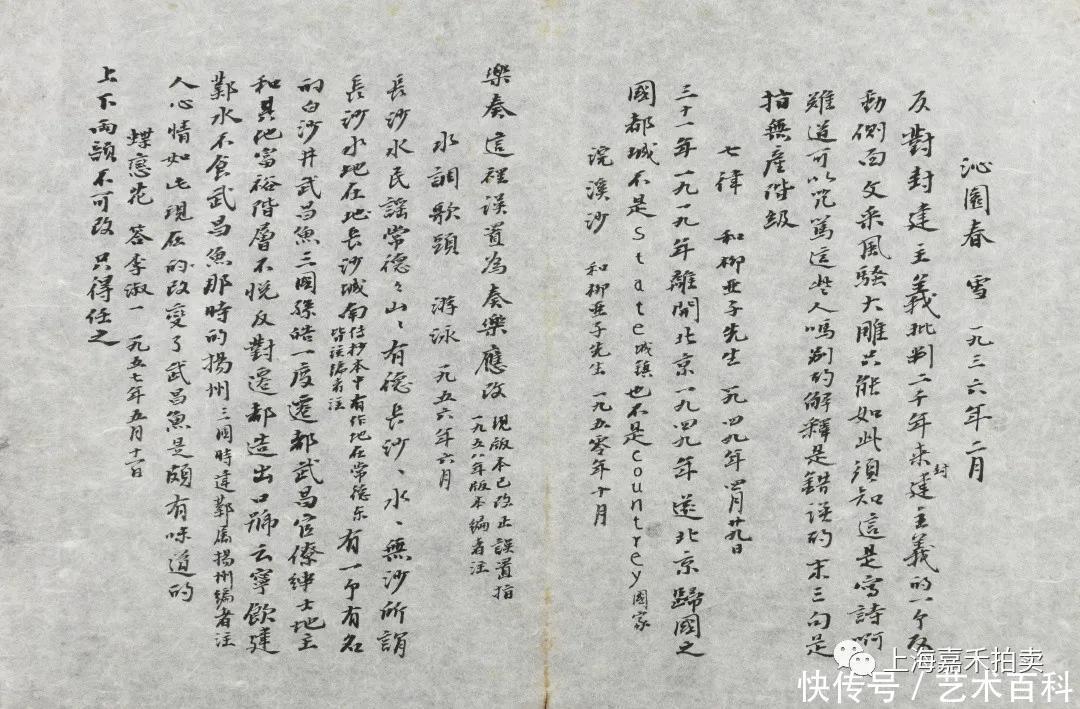 沁園春　雪　一九三六年二月
反對封建主義批判二千年來封建主義的一个反
動側面文采風騷大雕只能如此須知這是寫詩啊
難道可以咒罵這些人嗎別的解釋是錯誤的末三句是
指無產階級
七律　和柳亞子先生　一九四九年四月廿九日
三十一年一九一九年離開北京一九四九年還北京歸國之
國都城不是State城鎮也不是countrey國家
浣溪沙　和柳亞子先生　一九五零年十月
樂奏這裡誤置為奏樂應改現版本已改正誤置指
一九五八年版本編者注
水調歌頭　游泳　一九五六年六月
長沙水民謠常德々山々有德長沙、水、無沙所謂
長沙水地在地長沙城南傳抄本中有作地在常德东
皆誤編者注有一个有名
的白沙井武昌魚三国孫皓一度遷都武昌官僚紳士地主
和其地富裕階層不悅反對遷都造出口號云寧飲建
鄴水不食武昌魚那時的揚州三國時建鄴属揚州編者注
人心情如此現在的改變了武昌魚是頗有味道的
蝶戀花　答李淑一　一九五七年五月十一日
上下兩韻不可改只得任之
上海嘉禾拍卖
快传号／艺术百科